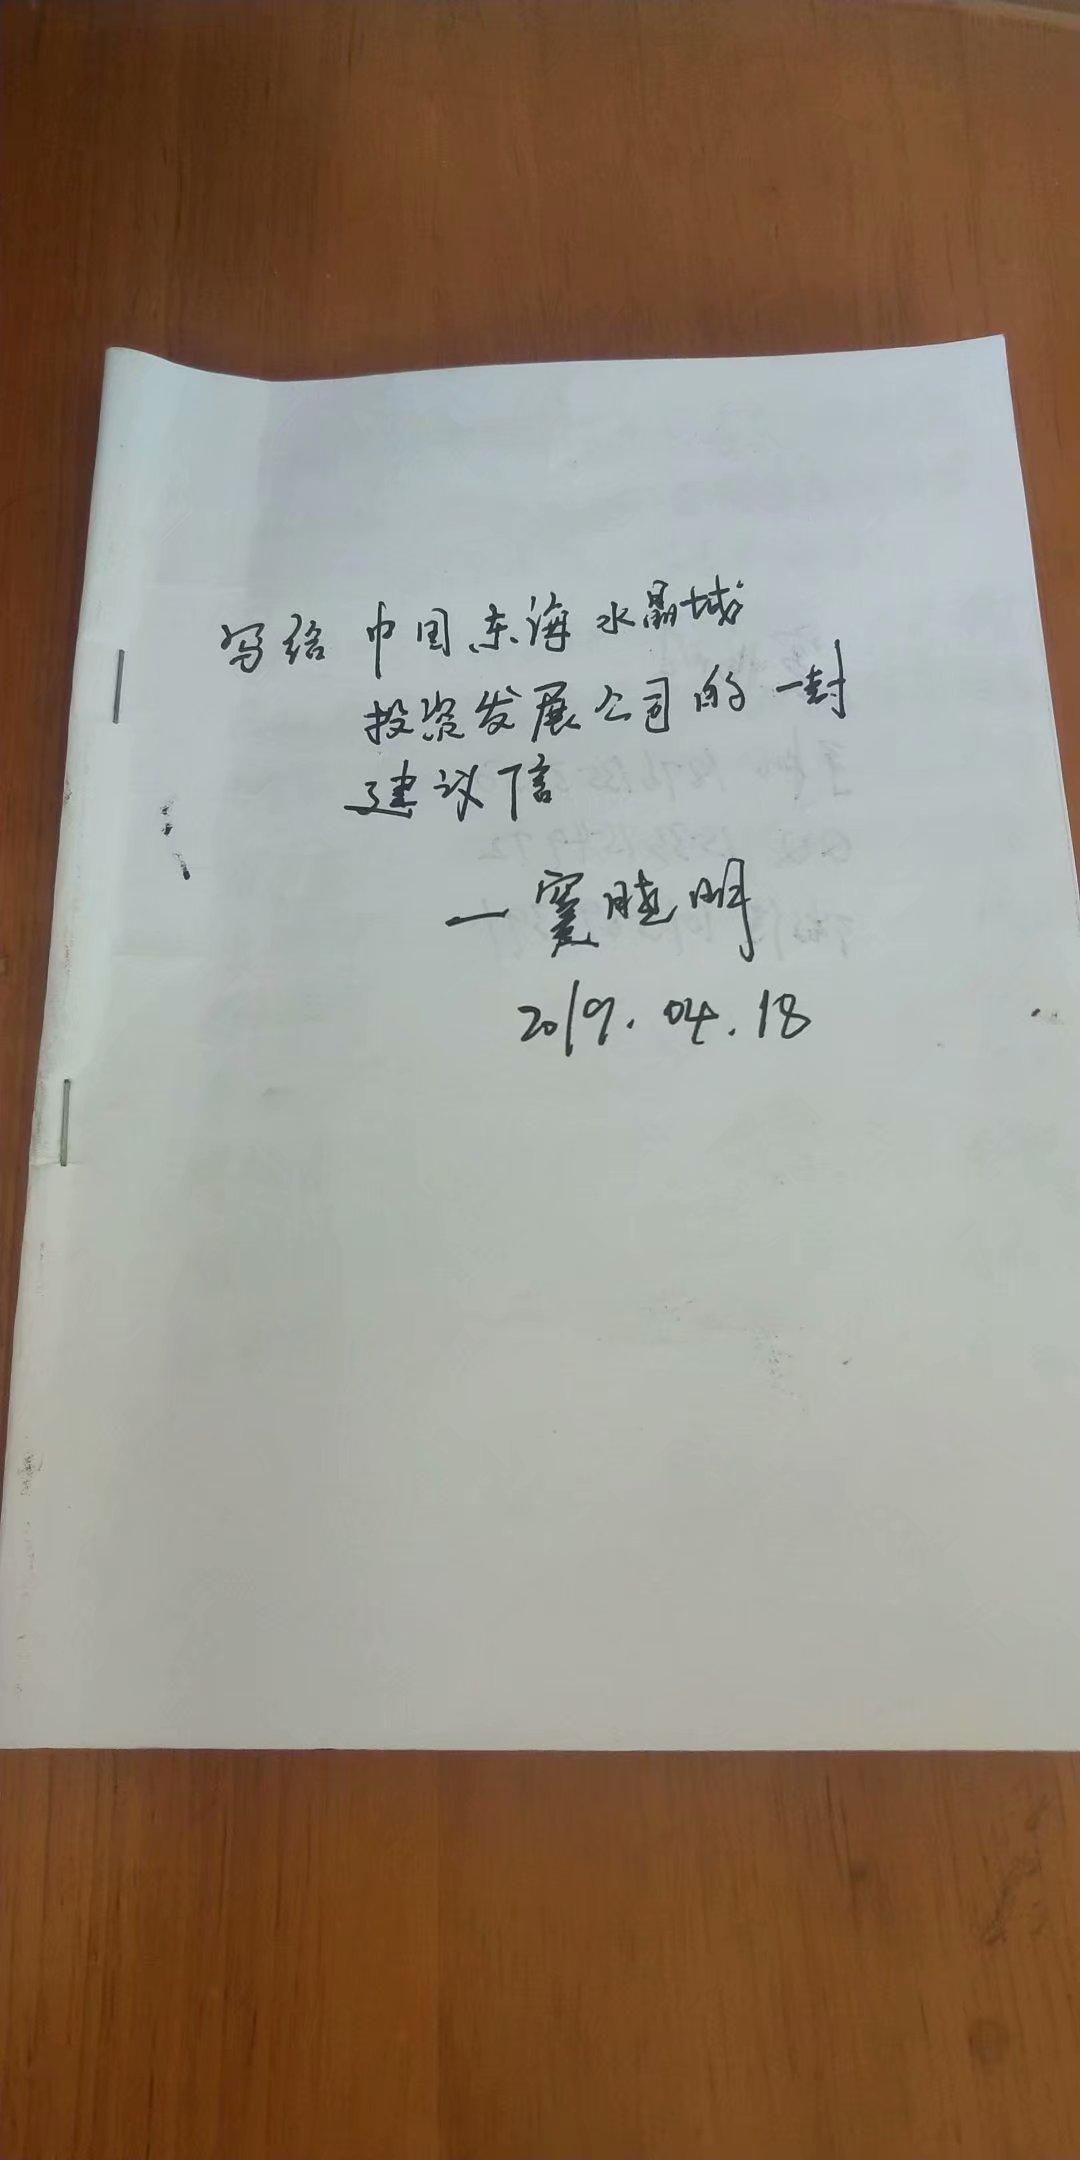 写给 中国东海水晶城
投资发展公司的一封
建议信
—窦晓明
2019.04.18